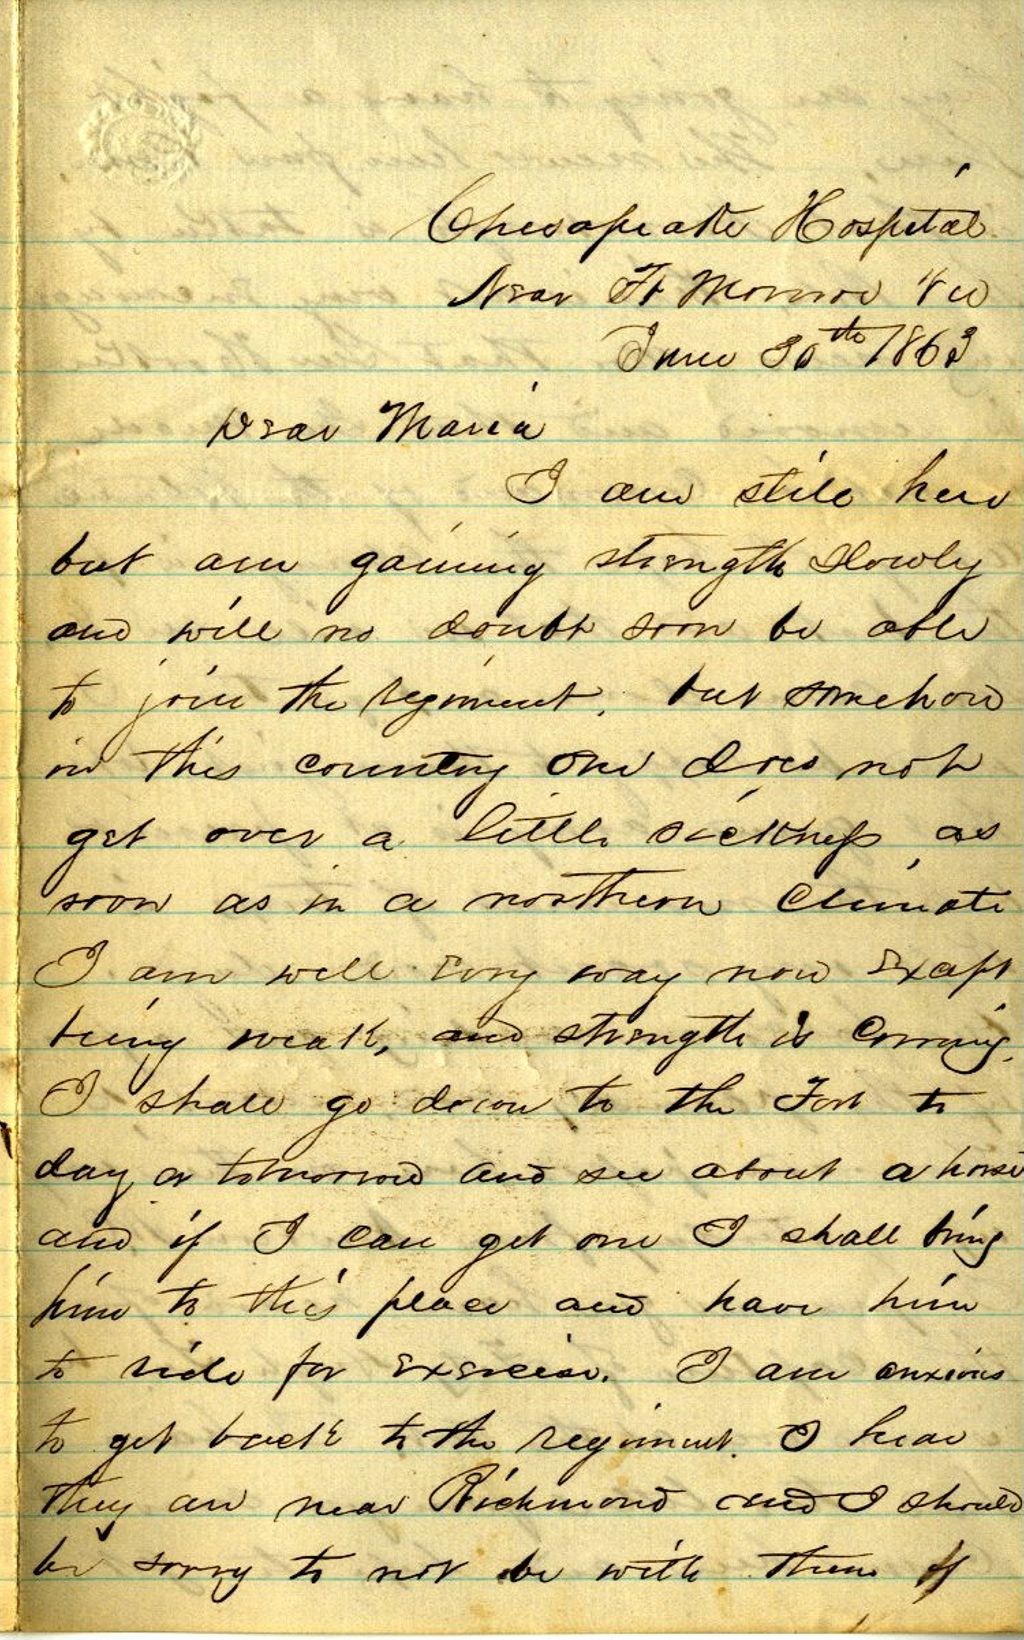 Chesapeake Hospital
Near Ft Monroe Va
June 30th 1863
Dear Maria
I am still here
but am gaining strength slowly
and will no doubt soon be able
to join the regiment, but somehow
in this country one does not
get over a little sickness as
soon as in a northern climate
I am well every way now except
being weak, and strength is coming.
I shall go down to the Fort to
day or tomorrow and see about a horse
and if I can get one I shall bring
him to this place and have him
to ride for exercise. I am anxious
to get back to the regiment. I hear
they are near Richmond and I should
be sorry to not be with them if